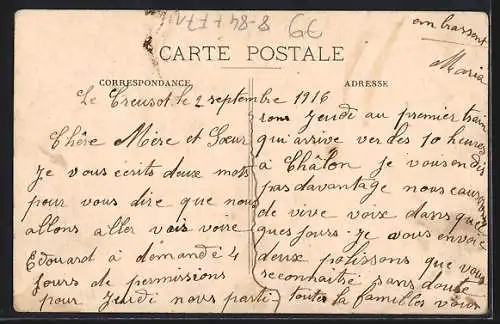 CARTE POSTALE
CORRESPONDANCE
ADRESSE
Le Creusot le 2 septembre 1916
Chère Mère et Sœur
Je vous écrits deux mots
pour vous dire que nous
allons aller vois voire
Edouard à demandé 4
jours de permissions
pour Jeudi nous parti
rons Jeudi au premier train
qui arrive ver des 10 heures
à Châlon je vousendis
pas davantage nous causerons
de vive voix dans quel
ques jours. Je vous envoie
deux polissons que vous
reconnaitré sans doute
toute la familles vous
embrassent
Maria